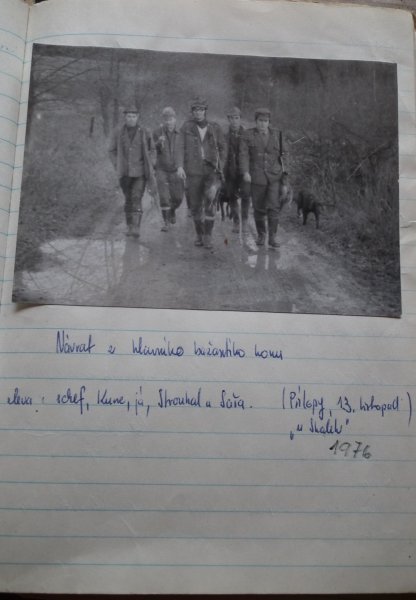 Návrat z hlavního bažantího honu
zleva: schef, Kunc, já, Strouhal a Sáša. (Přílepy, 13. listopad)
„u Skalek"
1976